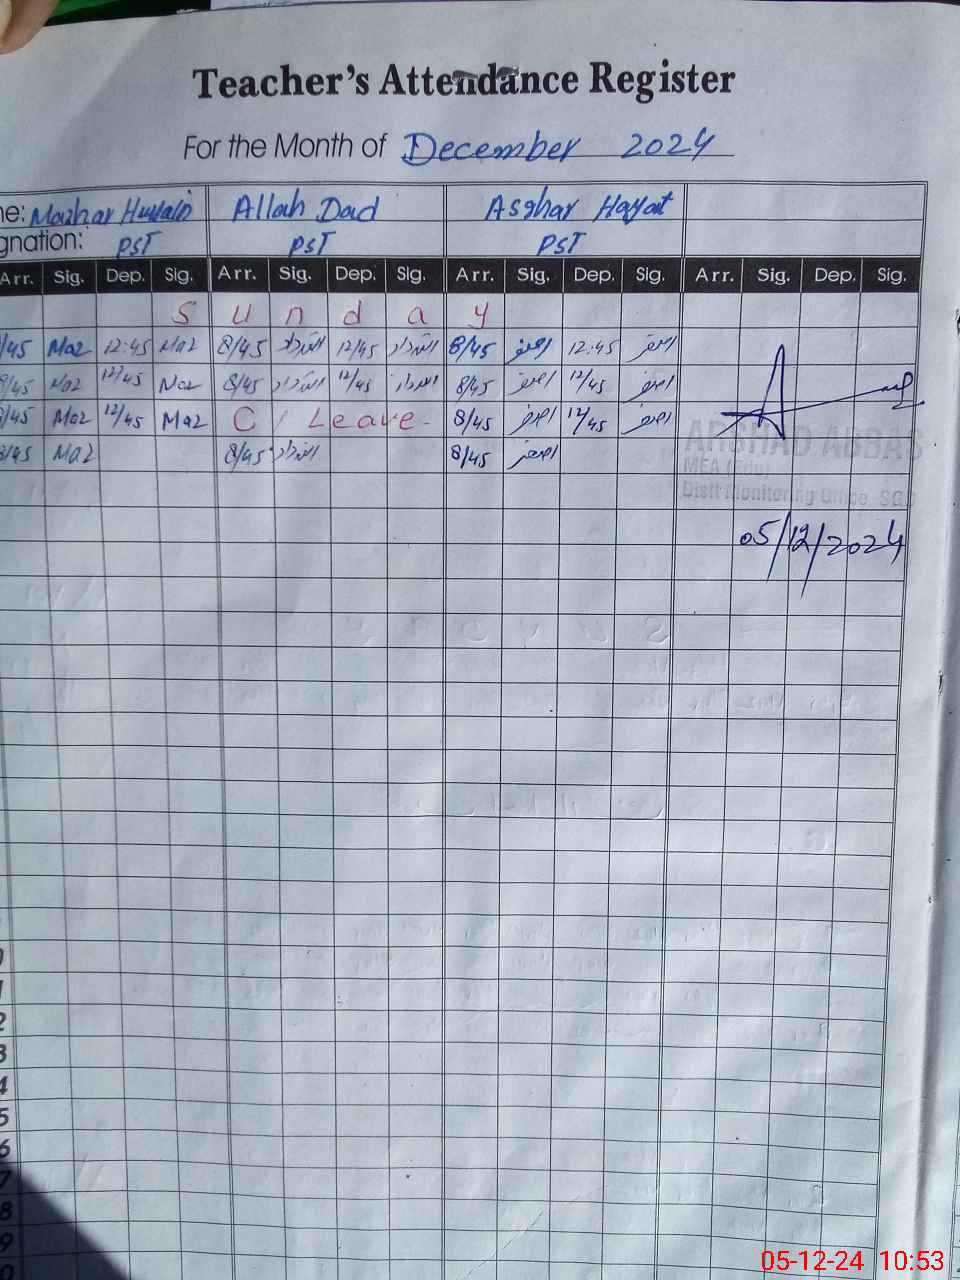 Teacher's Attendance Register
For the Month of December 2024
ne: Mazhar Hussain Allah Dad Asghar Hayat
gnation: PST PST PST
Arr. Sig. Dep. Sig. Arr. Sig. Dep. Sig. Arr. Sig. Dep. Sig. Arr. Sig. Dep. Sig.
S u n d a y
/45 Maz 12:45 Maz 8/45 اللہ داد 12/45 اللہ داد 8/45 اصغر 12:45 اصغر
8/45 Maz 12/45 Maz 8/45 اللہ داد 12/45 اللہ داد 8/45 اصغر 12/45 اصغر
8/45 Maz 12/45 Maz C/ Leave 8/45 اصغر 12/45 اصغر
8/45 Maz 8/45 اللہ داد 8/45 اصغر
ARSHAD ABBAS
MEA (Edu)
Distt Monitoring Office, SGD
05/12/2024
0
1
2
3
4
5
6
7
8
9
0
05-12-24 10:53